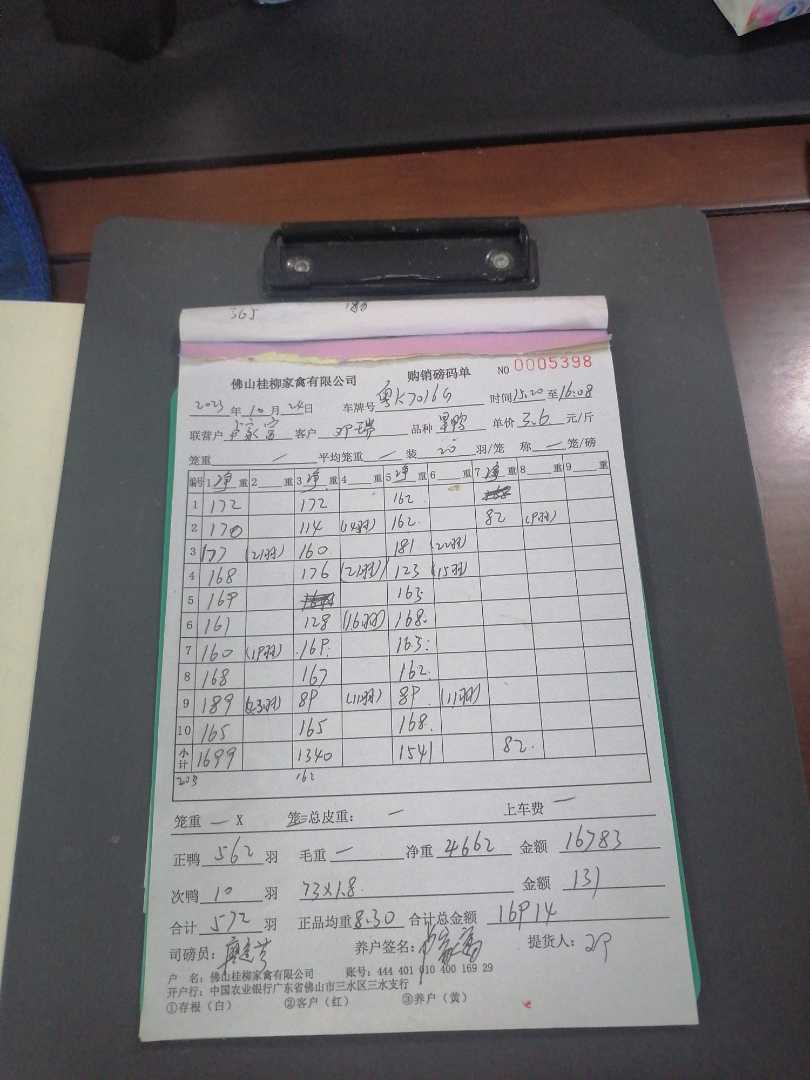 365 180
佛山桂柳家禽有限公司 购销磅码单 NO 0005398
2023年10月24日 车牌号 粤K7016G 时间15:20至16:08
联营户 家富 客户 邓瑞 品种 单价 3.6 元/斤
笼重 — 平均笼重 — 装 20 羽/笼 称 — 笼/磅
编号 1 净 重 2 重 3 净 重 4 重 5 净 重 6 重 7 净 重 8 重 9 重
1 172 172 162
2 170 114 (14羽) 162. 82 (9羽)
3 177 (21羽) 160 181 (22羽)
4 168 176 (21羽) 123 (15羽)
5 169 163.
6 161 128 (16羽) 168.
7 160 (19羽) 169. 163.
8 168 167 162.
9 189 (23羽) 89 (11羽) 89. (11羽)
10 165 165 168.
小计 1699 1340 1541 82.
203 162
笼重 — X 笼=总皮重: — 上车费 —
正鸭 562 羽 毛重 — 净重 4662 金额 16783
次鸭 10 羽 73×1.8. 金额 131
合计 572 羽 正品均重 8.30 合计总金额 16914
司磅员: 养户签名: 家富 提货人:
户 名: 佛山桂柳家禽有限公司 账号: 444 401 010 400 169 29
开户行: 中国农业银行广东省佛山市三水区三水支行
①存根（白） ②客户（红） ③养户（黄）